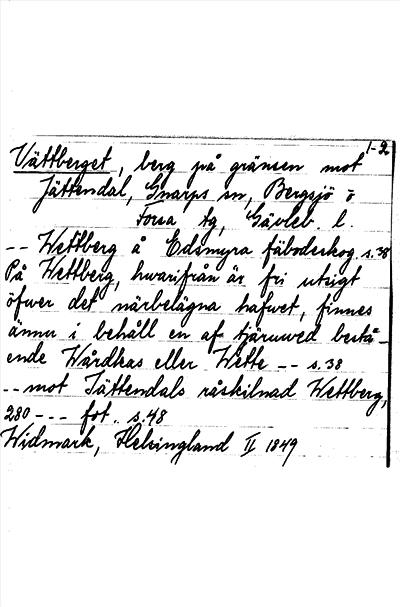 1-2
Vättberget, berg på gränsen mot
Jättendal, Gnarps sn, Bergsjö o
Forsa tg, Gävleb. l.
-- Wettberg å Edsmyra fäbodeskog. s.38
På Wettberg, hwarifrån är fri utsigt
öfwer det närbelägna hafwet, finnes
ännu i behåll en af tjäruwed bestå-
ende Wårdkas eller Wette -- s.38
-- mot Jättendals råskilnad Wettberg,
280 --- fot.. s.48
Widmark, Helsingland II 1849